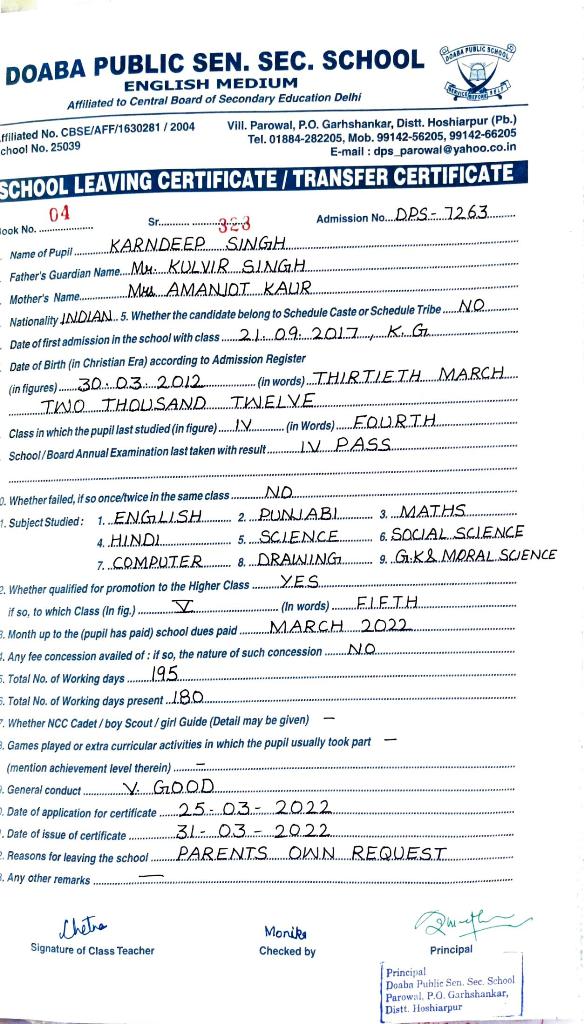 DOABA PUBLIC SEN. SEC. SCHOOL
DOABA PUBLIC SCHOOL
SERVICE BEFORE SELF
ENGLISH MEDIUM
Affiliated to Central Board of Secondary Education Delhi
ffiliated No. CBSE/AFF/1630281 / 2004
Vill. Parowal, P.O. Garhshankar, Distt. Hoshiarpur (Pb.)
chool No. 25039
Tel. 01884-282205, Mob. 99142-56205, 99142-66205
E-mail : dps_parowal@yahoo.co.in
SCHOOL LEAVING CERTIFICATE / TRANSFER CERTIFICATE
ook No. 04 Sr. 323 Admission No. DPS-7263
Name of Pupil KARNDEEP SINGH
Father's Guardian Name Mr. KULVIR SINGH
Mother's Name Mrs AMANJOT KAUR
Nationality INDIAN 5. Whether the candidate belong to Schedule Caste or Schedule Tribe NO
Date of first admission in the school with class 21.09.2017, K.G
Date of Birth (in Christian Era) according to Admission Register
(in figures) 30.03.2012 (in words) THIRTIETH MARCH
TWO THOUSAND TWELVE
Class in which the pupil last studied (in figure) IV (in Words) FOURTH
School / Board Annual Examination last taken with result IV PASS
0. Whether failed, if so once/twice in the same class NO
1. Subject Studied : 1. ENGLISH 2. PUNJABI 3. MATHS
4. HINDI 5. SCIENCE 6. SOCIAL SCIENCE
7. COMPUTER 8. DRAWING 9. G.K & MORAL SCIENCE
2. Whether qualified for promotion to the Higher Class YES
if so, to which Class (In fig.) V (In words) FIFTH
3. Month up to the (pupil has paid) school dues paid MARCH 2022
4. Any fee concession availed of : if so, the nature of such concession NO
5. Total No. of Working days 195
6. Total No. of Working days present 180
7. Whether NCC Cadet / boy Scout / girl Guide (Detail may be given) —
8. Games played or extra curricular activities in which the pupil usually took part —
(mention achievement level therein) —
9. General conduct V. GOOD
0. Date of application for certificate 25-03-2022
1. Date of issue of certificate 31-03-2022
2. Reasons for leaving the school PARENTS OWN REQUEST
3. Any other remarks —
Chetna Monika
Signature of Class Teacher Checked by Principal
Principal
Doaba Public Sen. Sec. School
Parowal, P.O. Garhshankar,
Distt. Hoshiarpur